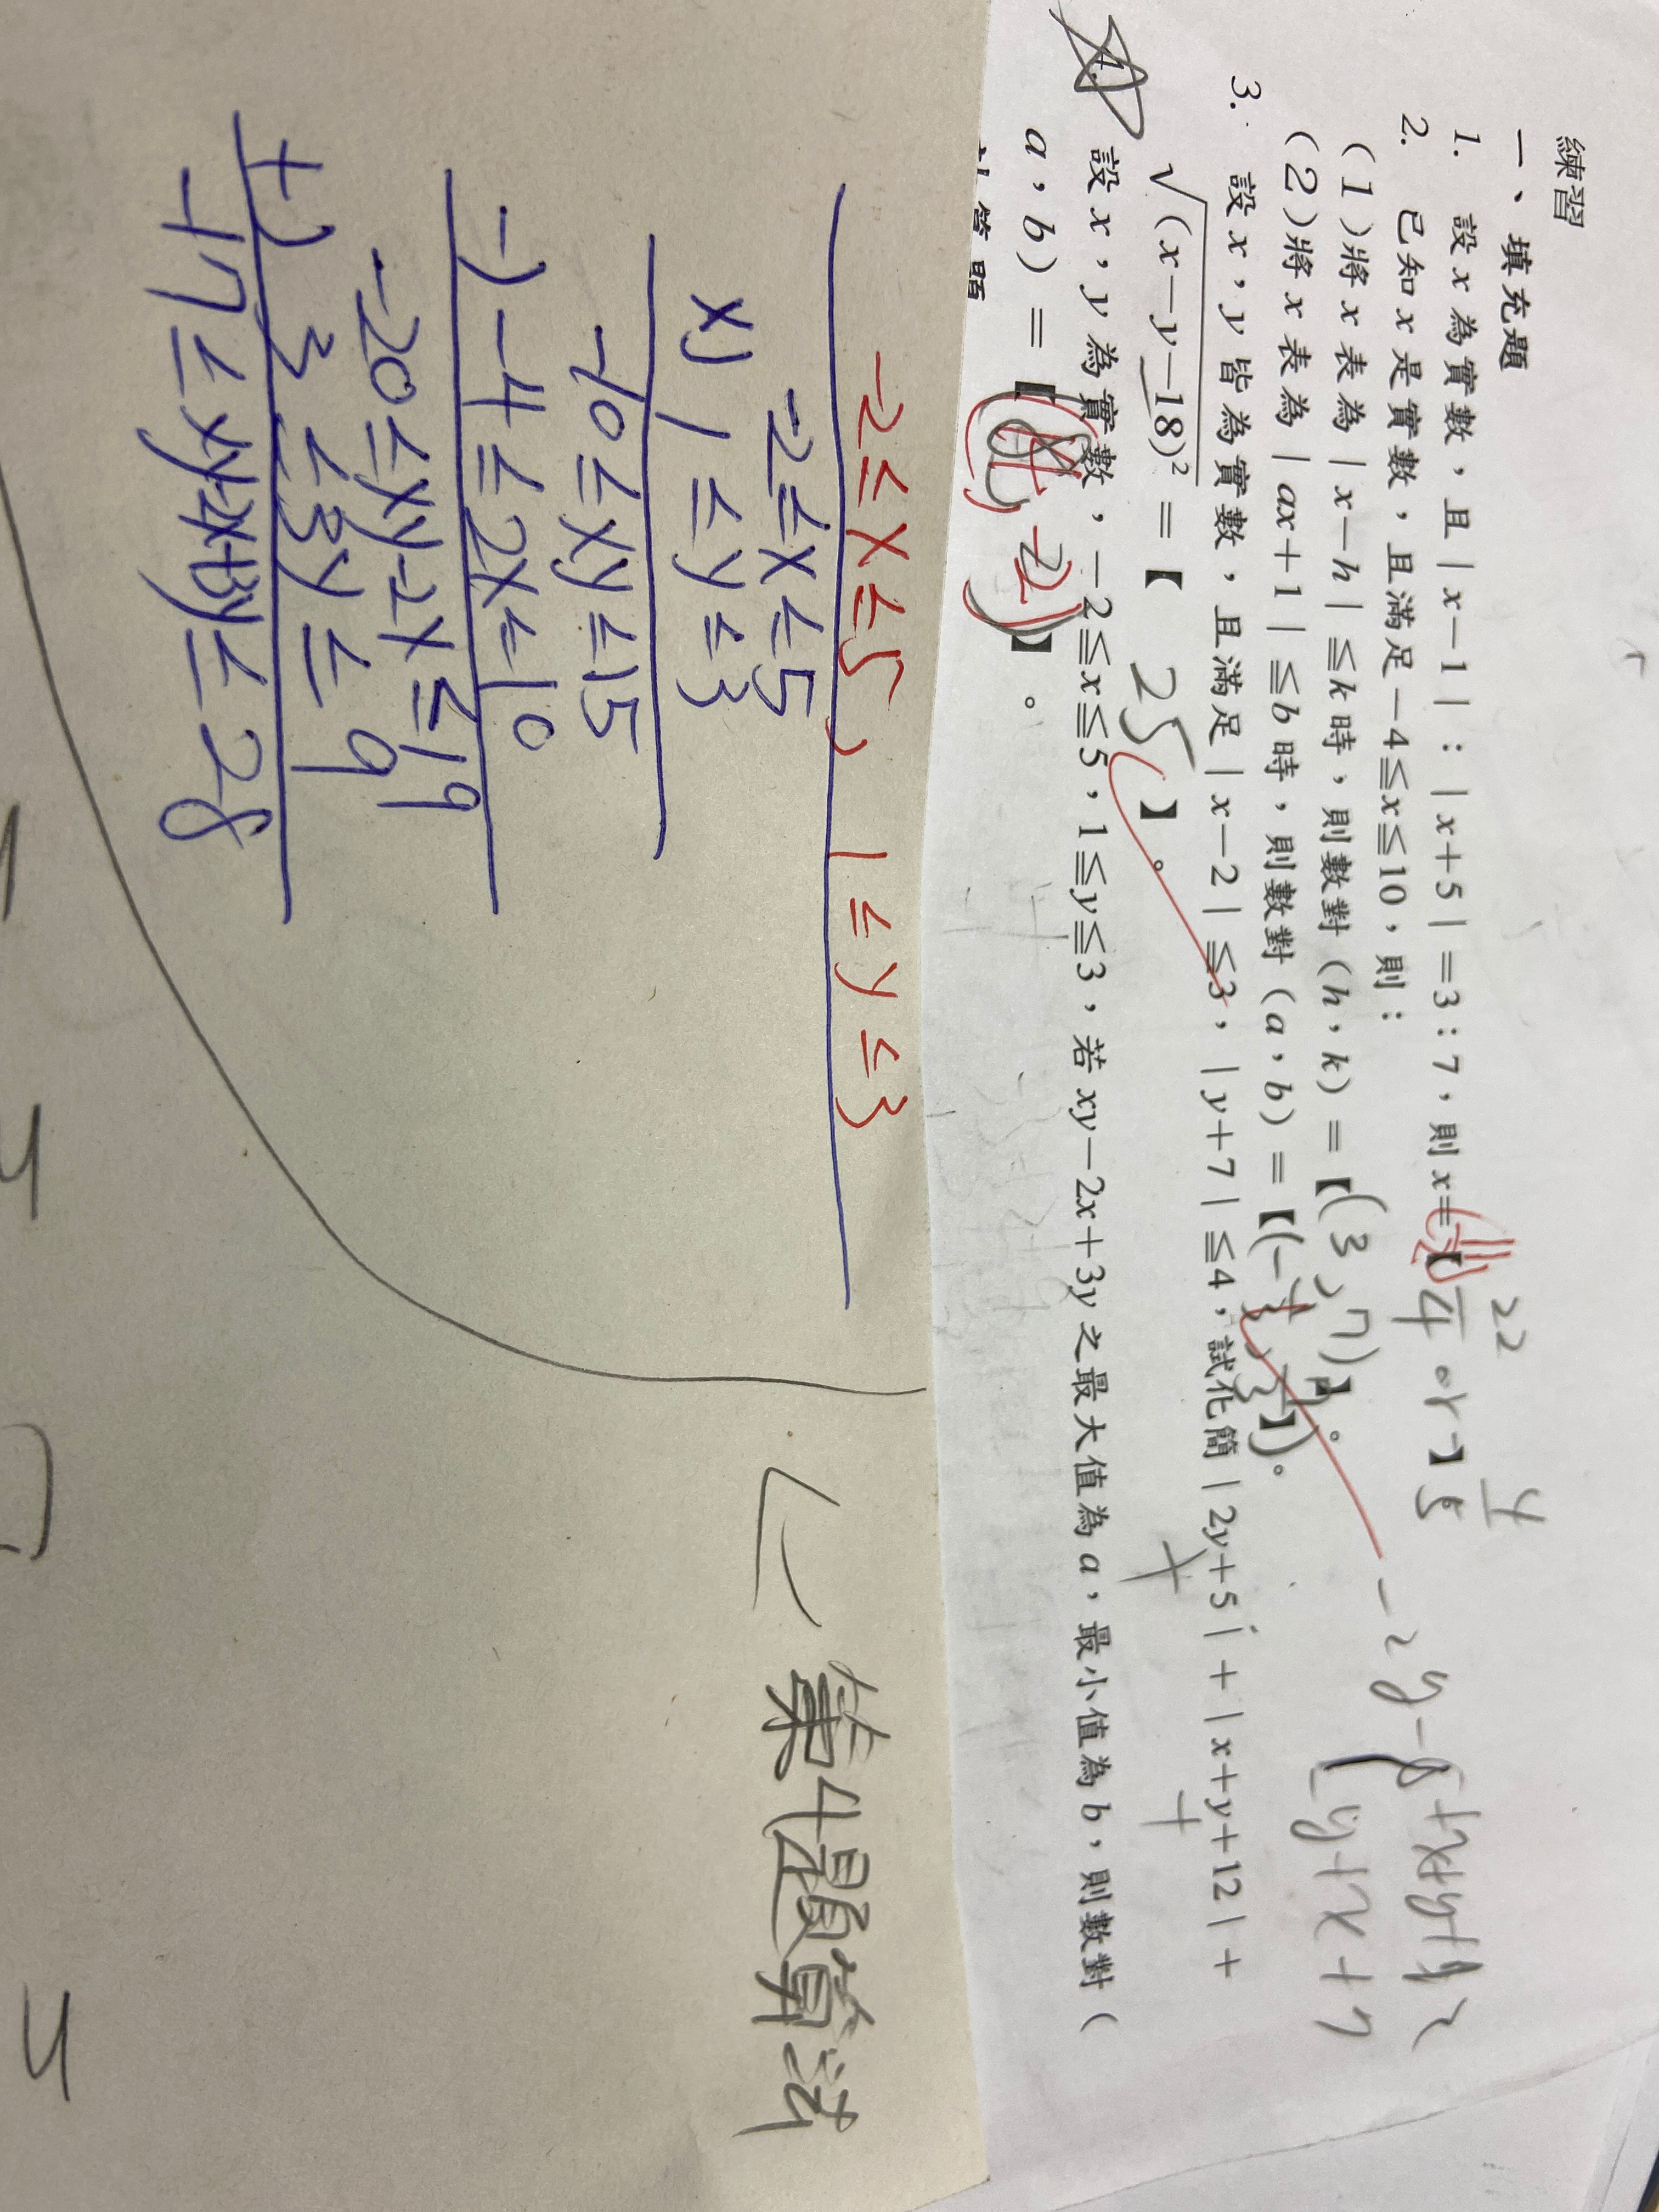 練習
一、填充題
1. 設x為實數，且|x－1|：|x＋5|＝3：7，則x＝【 22/4 or 】 4/5
2. 已知x是實數，且滿足－4≦x≦10，則：
（1）將x表為|x－h|≦k時，則數對（h，k）＝【(3,7)】。
（2）將x表為|ax＋1|≦b時，則數對（a，b）＝【(-1/3, 7/3)】。
-2y-5+x+y+12
-y+x+7
3. 設x，y皆為實數，且滿足|x－2|≦3，|y＋7|≦4，試化簡|2y＋5|＋|x＋y＋12|＋
√(x－y－18)²＝【 25 】。
4. 設x，y為實數，－2≦x≦5，1≦y≦3，若xy－2x＋3y之最大值為a，最小值為b，則數對（
a，b）＝【 , -2)】。
-2≤x≤5, 1≤y≤3
-2≤x≤5
x) 1≤y≤3
-10≤xy≤15
-) -4≤2x≤10
-20≤xy-2x≤19
+) 3≤3y≤9
-17≤xy-2x+3y≤28
第4題算法